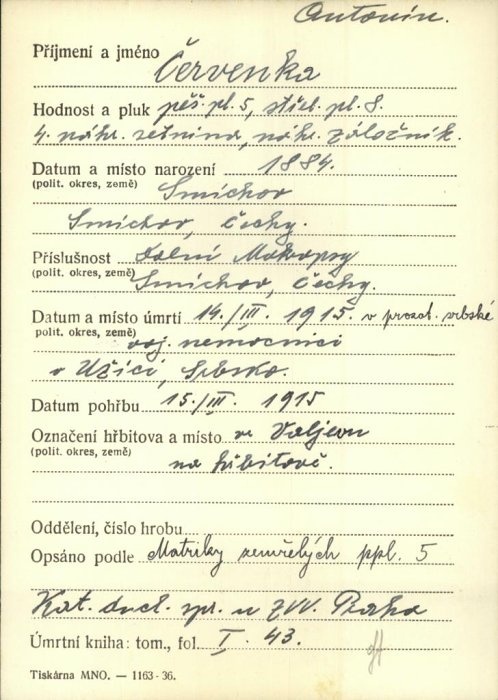 Antonín.
Příjmení a jméno Červenka
Hodnost a pluk pěš. pl. 5, střel. pl. 8.
4. náhr. setnina, náhr. záložník.
Datum a místo narození 1884.
(polit. okres, země) Smíchov
Smíchov, Čechy.
Příslušnost Dolní Mokropsy
(polit. okres, země) Smíchov, Čechy.
Datum a místo úmrtí 14./III. 1915. v prozat. srbské
polit. okres, země) voj. nemocnici
v Užici, Srbsko.
Datum pohřbu 15./III. 1915
Označení hřbitova a místo ve Valjevu
(polit. okres, země) na hřbitově.
Oddělení, číslo hrobu
Opsáno podle Matriky zemřelých ppl. 5
Kat. duch. spr. u ZVV. Praha
Úmrtní kniha: tom., fol. I. 43.
Tiskárna MNO. — 1163-36.